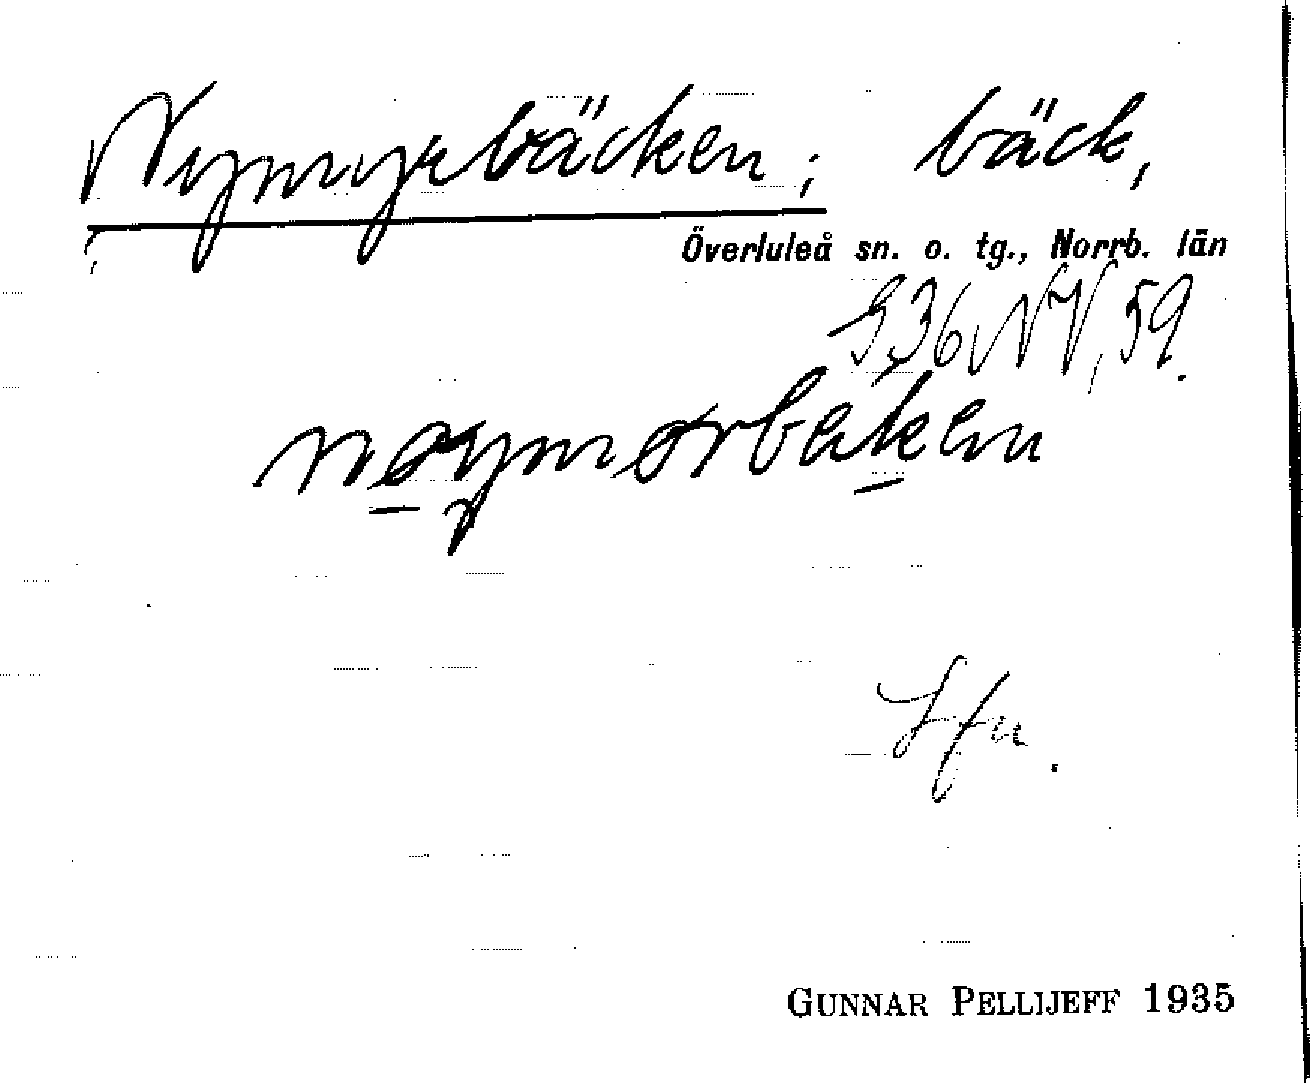 Nymyrbäcken; bäck,
Överluleå sn. o. tg., Norrb. län
S36NV, 59.
nøymørbeken
GUNNAR PELLIJEFF 1935